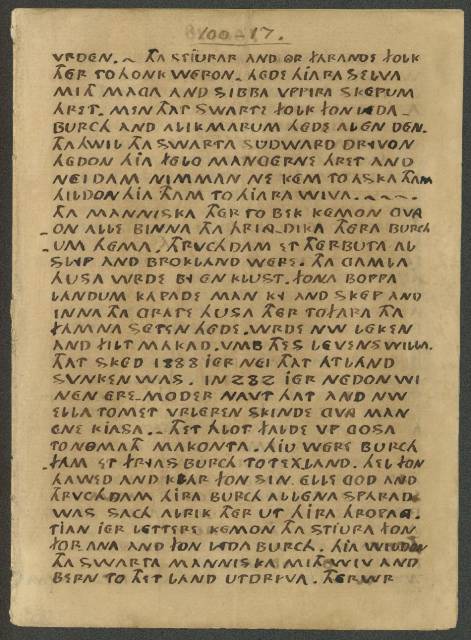 VRDEN. ~ THA STIURAR AND OR FARANDE FOLK
THER TO HONK WERON. HEDE HIARA SELVA
MITH MAGA AND SIBBA VPPIRA SKEPUM
HRET. MEN THAT SWARTE FOLK FON LYDA-
BURCH AND ALIKMARUM HEDE ALEN DEN.
THAHWIL THA SWARTA SUDWARD DRYVON
HEDON HIA FELO MANGERNE HRET AND
NEIDAM NIMMAN NE KEM TO ASKA THAM
HILDON HIA THAM TO HIARA WIVA. ~ ~ ~
THA MANNISKA THER TO BEK KEMON GVNG
ON ALLE BINNA THA HRING-DIKA THERA BURCH
-UM HEMA. THRVCHDAM ET THER BUTA AL
SLYP AND BROKLAND WERE. THA GAMLA
HUSA WRDE BY EN KLUST. FONA BOPPA
LANDUM KAPADE MAN KY AND SKEP AND
INNA THA GRATE HUSA THER TO FARA THA
FAMNA SETEN HEDE. WRDE NW LEKEN
AND FILT MAKAD. VMB THES LEVENS WILLA.
THAT SKED 1888 IER NEI THAT ATLAND
SVNKEN WAS. IN 282 IER NEDON WI
NEN ERE-MODER NAVT HAT AND NW
ELLA TOMET VRLEREN SKINDE GVNG MAN
ENE KIASA. - THET HLOT FALDE VP GOSA
TO NOMATH MAKONTA. HIU WERE BURCH
-FAM ET FRYAS BURCH TO TEXLAND. HEL FON
HAWED AND KLAR FON SIN. ELLE GOD AND
THRVCHDAM HIRA BURCH ALLENA SPARAD
WAS SACH ALRIK THER UT HIRA HROPANG.
TIAN IER LETTERE KEMON THA STIURA FON
FORANA AND FON LYDA BURCH. HIA WILDON
THA SWARTA MANNISKA MITH WIV AND
BERN TO THET LAND UTDRYVA. THER WR